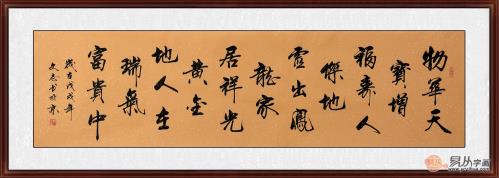 物華天
寶增
福壽人
傑地
靈出鳳
龍家
居祥光
黃金
地人在
瑞氣
富貴中
戊戌年
易从字画